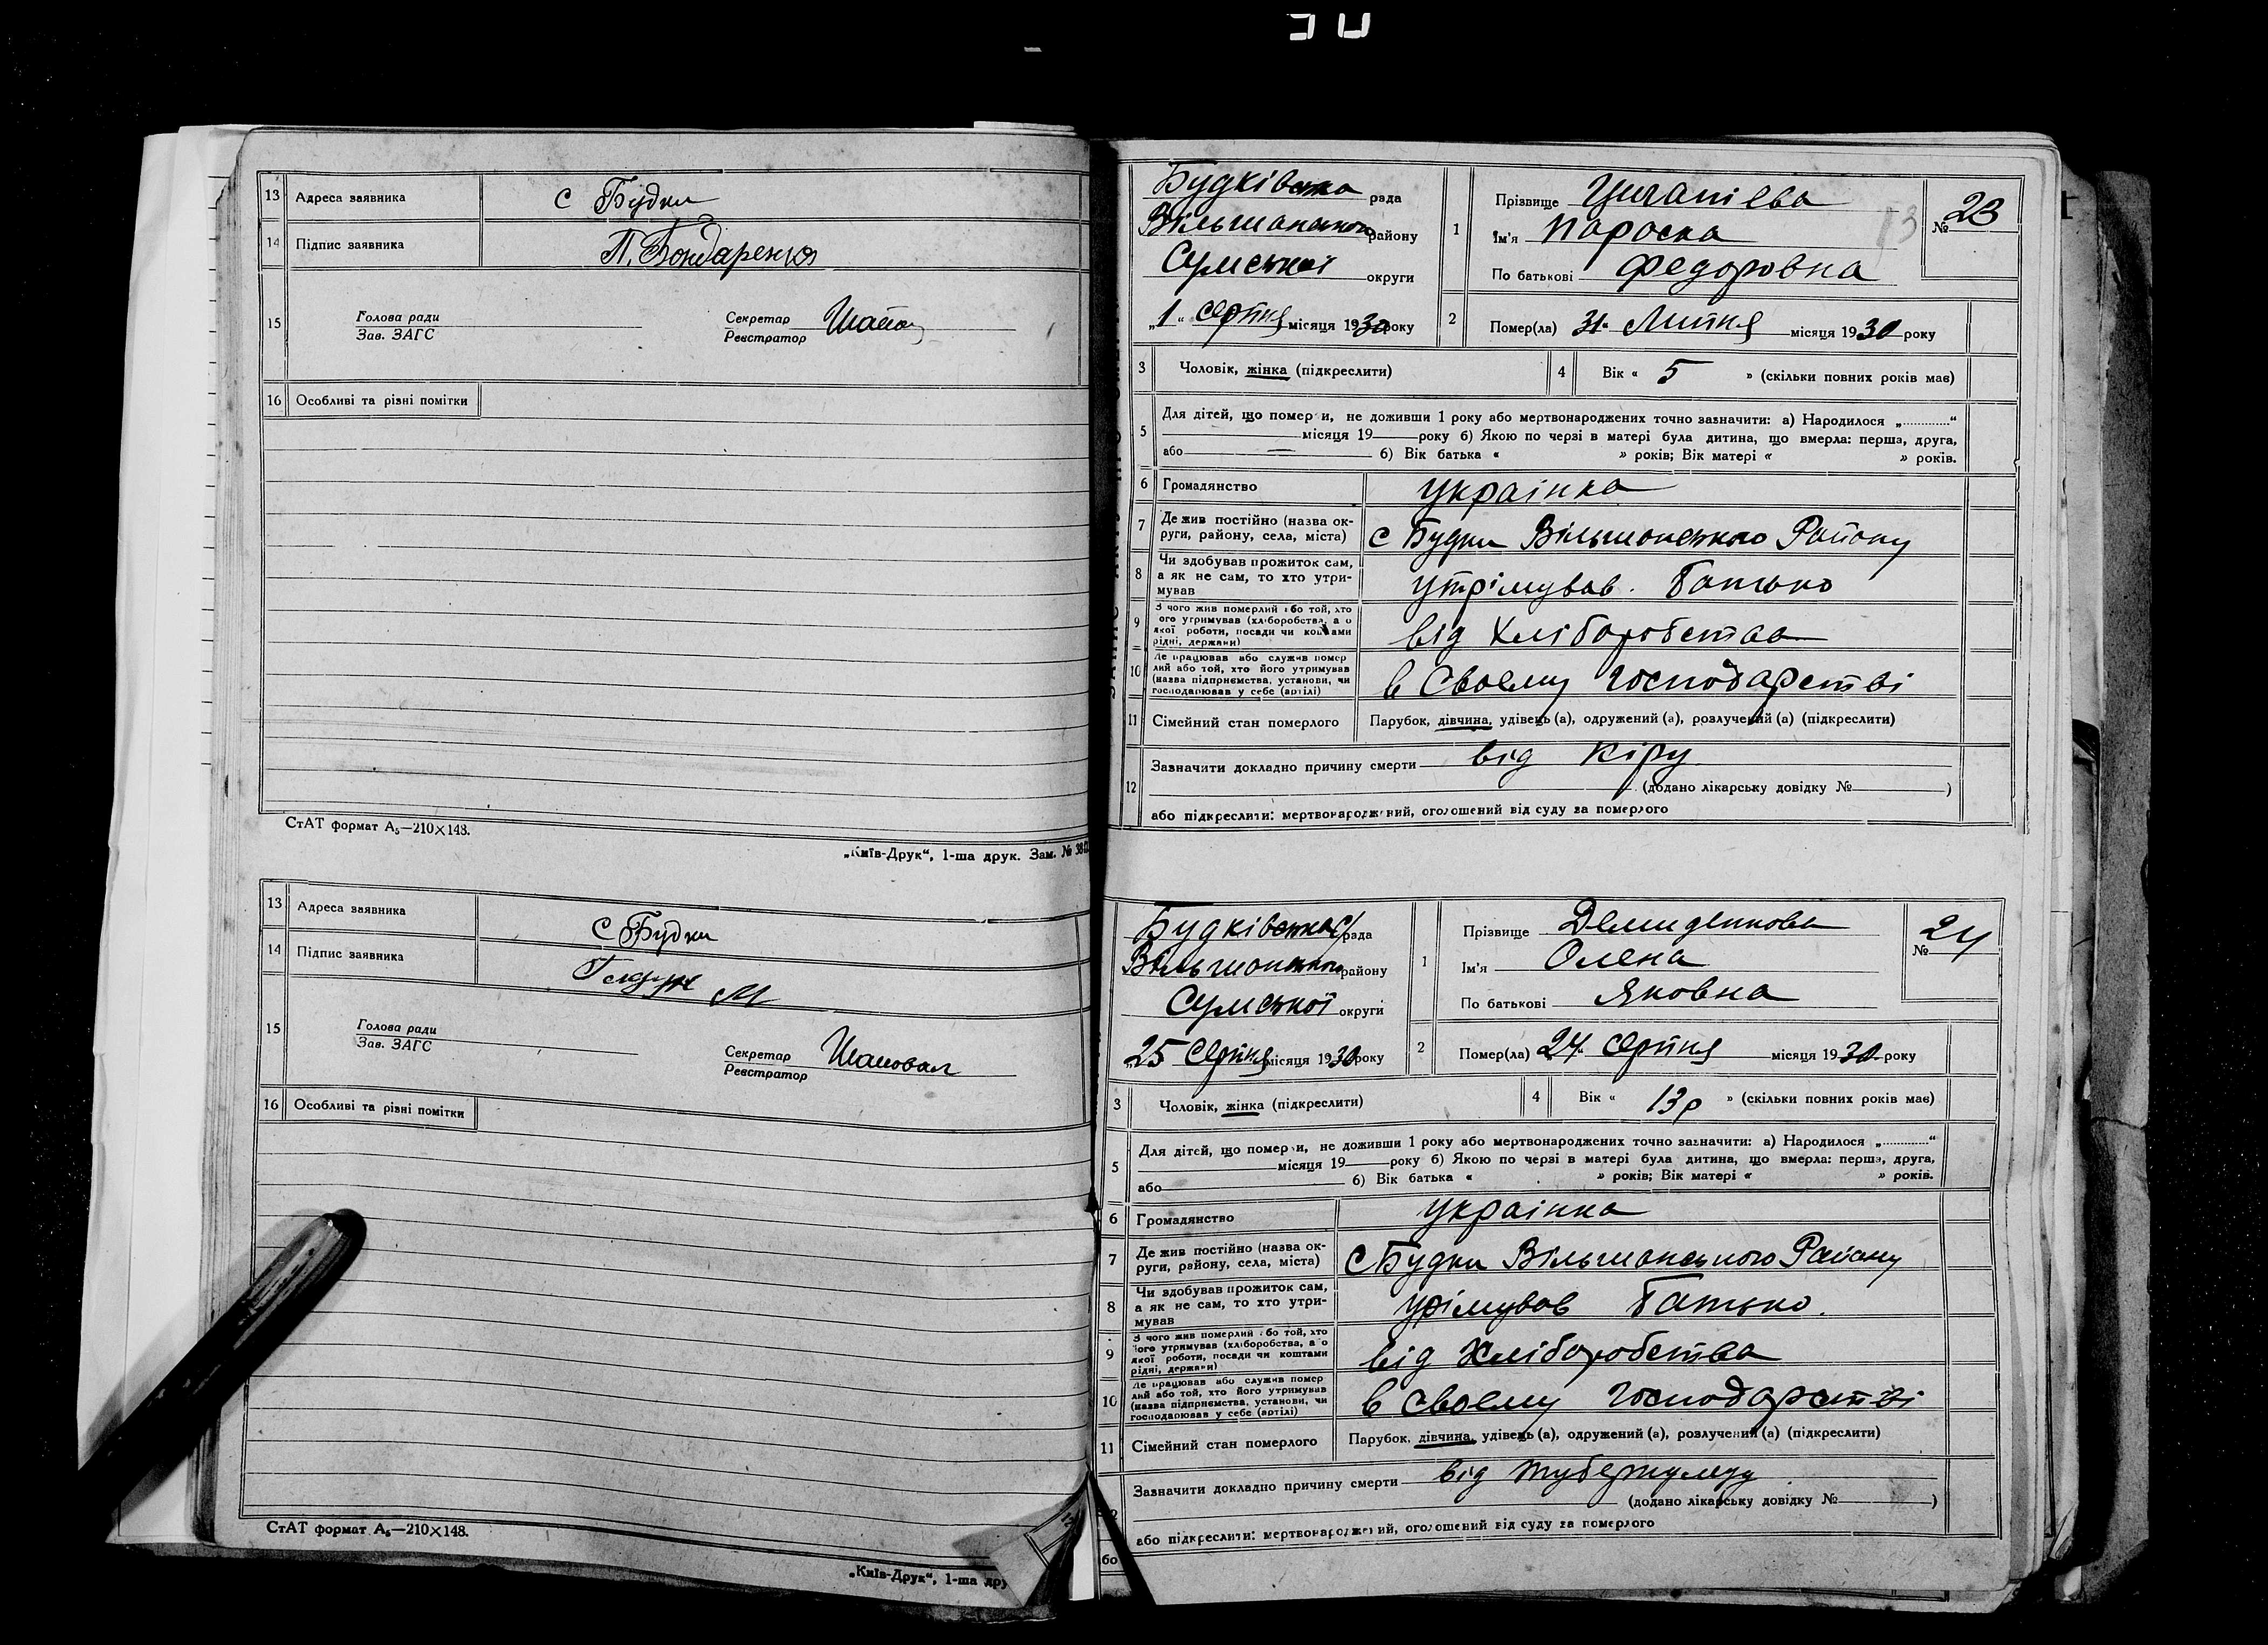 13 Адреса заявника с Будки
14 Підпис заявника П. Бондаренко
15 Голова ради
Зав. ЗАГС
Секретар
Реєстратор
16 Особливі та різні помітки
СтАТ формат А₅—210×148.
„Київ-Друк“, 1-ша друк. Зам. №
13 Адреса заявника с Будки
14 Підпис заявника
15 Голова ради
Зав. ЗАГС
Секретар Шаповал
Реєстратор
16 Особливі та різні помітки
СтАТ формат А₅—210×148.
„Київ-Друк“, 1-ша дру
Будківська рада
Вільшанського району
Сумської округи
„1“ серпня місяця 1930 року
1 Прізвище
Ім'я Параска
По батькові Федоровна
№ 23
2 Помер(ла) 31 Липня місяця 1930 року
3 Чоловік, жінка (підкреслити)
4 Вік « 5 » (скільки повних років має)
5 Для дітей, що померли, не доживши 1 року або мертвонароджених точно зазначити: а) Народилося „............“
місяця 19 року б) Якою по черзі в матері була дитина, що вмерла: перша, друга,
або 6) Вік батька « » років; Вік матері « » років.
6 Громадянство українка
7 Де жив постійно (назва ок-
руги, району, села, міста) с Будки Вільшанського Району
8 Чи здобував прожиток сам,
а як не сам, то хто утри-
мував утрімував. Батько
9 З чого жив померлий або той, хто
його утримував (хліборобства, а о
якої роботи, посади чи коштами
рідні, держави) від Хліборобства
10 Де працював або служив помер
лий або той, хто його утримував
(назва підприємства, установи, чи
господарював у себе (артілі) в Своєму господарстві
11 Сімейний стан померлого Парубок, дівчина, удівець (а), одружений (а), розлучений (а) (підкреслити)
12 Зазначити докладно причину смерти від Кіру
(додано лікарську довідку № )
або підкреслити: мертвонароджений, оголошений від суду за померлого
Будківська с/рада
Вільшанського району
Сумської округи
„25 Серпня місяця 1930 року
1 Прізвище Демиденкова
Ім'я Олена
По батькові Яковна
№ 24
2 Помер(ла) „24“ серпня місяця 1930 року
3 Чоловік, жінка (підкреслити)
4 Вік « 13р » (скільки повних років має)
5 Для дітей, що померли, не доживши 1 року або мертвонароджених точно зазначити: а) Народилося „............“
місяця 19 року б) Якою по черзі в матері була дитина, що вмерла: перша, друга,
або 6) Вік батька « » років; Вік матері « » років.
6 Громадянство українка
7 Де жив постійно (назва ок-
руги, району, села, міста) с Будки Вільшанського Району
8 Чи здобував прожиток сам,
а як не сам, то хто утри-
мував Батько.
9 З чого жив померлий або той, хто
його утримував (хліборобства, а о
якої роботи, посади чи коштами
рідні, держави) від Хліборобства
10 Де працював або служив помер
лий або той, хто його утримував
(назва підприємства, установи, чи
господарював у себе (артілі) в своєму господарстві
11 Сімейний стан померлого Парубок, дівчина, удівець (а), одружений (а), розлучений (а) (підкреслити)
Зазначити докладно причину смерти від туберкульозу
(додано лікарську довідку № )
або підкреслити: мертвонароджений, оголошений від суду за померлого